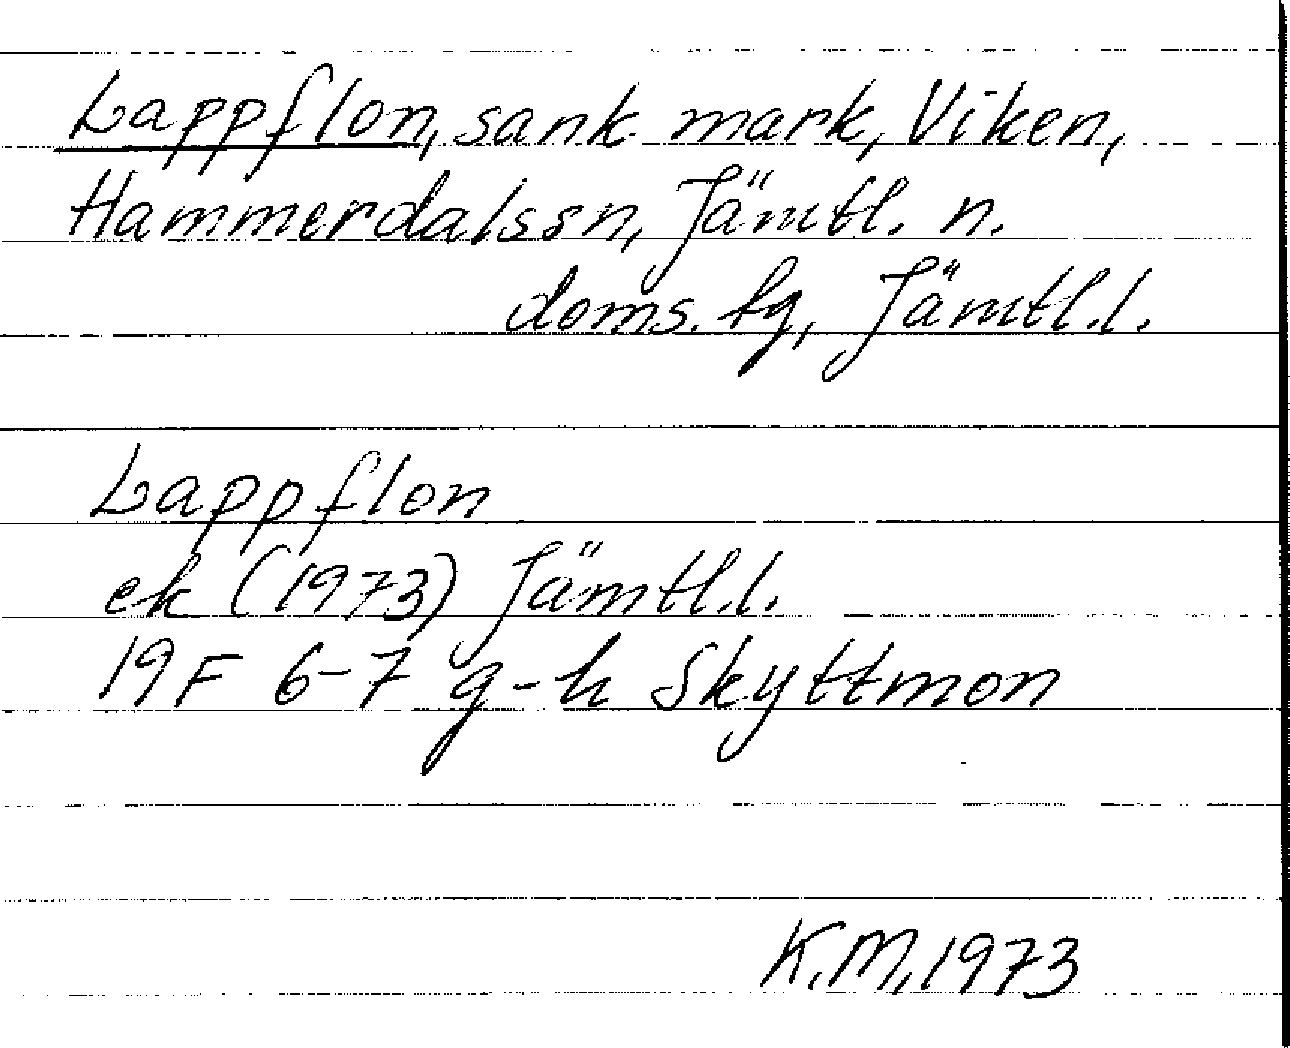 Lappflon, sank mark, Viken,
Hammerdalssn, Jämtl. n.
doms. fg, Jämtl.l.
Lappflon
ek (1973) Jämtl.l.
19F 6-7 g-h Skyttmon
K.M, 1973